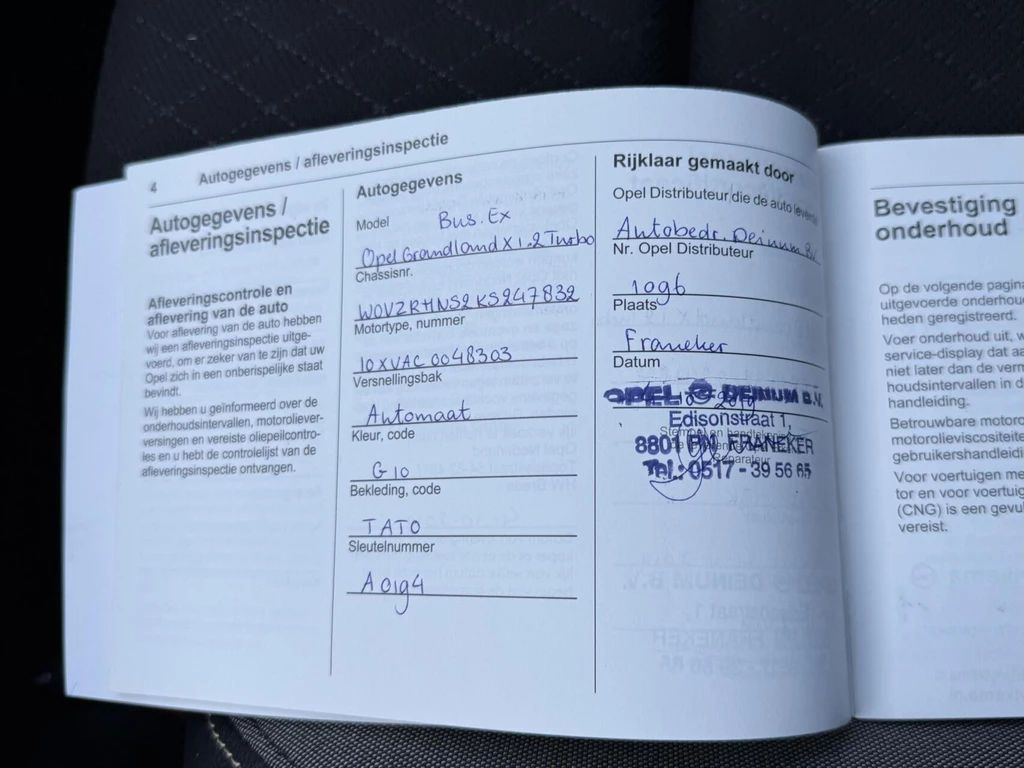 4 Autogegevens / afleveringsinspectie
Autogegevens /
afleveringsinspectie
Afleveringscontrole en
aflevering van de auto
Voor aflevering van de auto hebben
wij een afleveringsinspectie uitge-
voerd, om er zeker van te zijn dat uw
Opel zich in een onberispelijke staat
bevindt.
Wij hebben u geïnformeerd over de
onderhoudsintervallen, motoroliever-
versingen en vereiste oliepeilcontro-
les en u hebt de controlelijst van de
afleveringsinspectie ontvangen.
Autogegevens
Model Bus. Ex
Opel Grandland X 1.2 Turbo
Chassisnr.
W0VZRHNS2KS247832
Motortype, nummer
10XVAC 0048303
Versnellingsbak
Automaat
Kleur, code
G10
Bekleding, code
TATO
Sleutelnummer
A0194
Rijklaar gemaakt door
Opel Distributeur die de auto
Autobedr. Deinum B.V.
Nr. Opel Distributeur
1096
Plaats
Franeker
Datum
2019
OPEL DEINUM B.V.
Edisonstraat 1,
Stempel en handtekening
8801 FRANEKER
Reparateur
Tel.: 0517 - 39 56 65
Bevestiging
onderhoud
Op de volgende pagina
uitgevoerde onderhou
heden geregistreerd.
Voer onderhoud uit, w
service-display dat aa
niet later dan de verm
houdsintervallen in d
handleiding.
Betrouwbare motoro
motorolieviscositeite
gebruikershandleidi
Voor voertuigen me
tor en voor voertuig
(CNG) is een gevul
vereist.